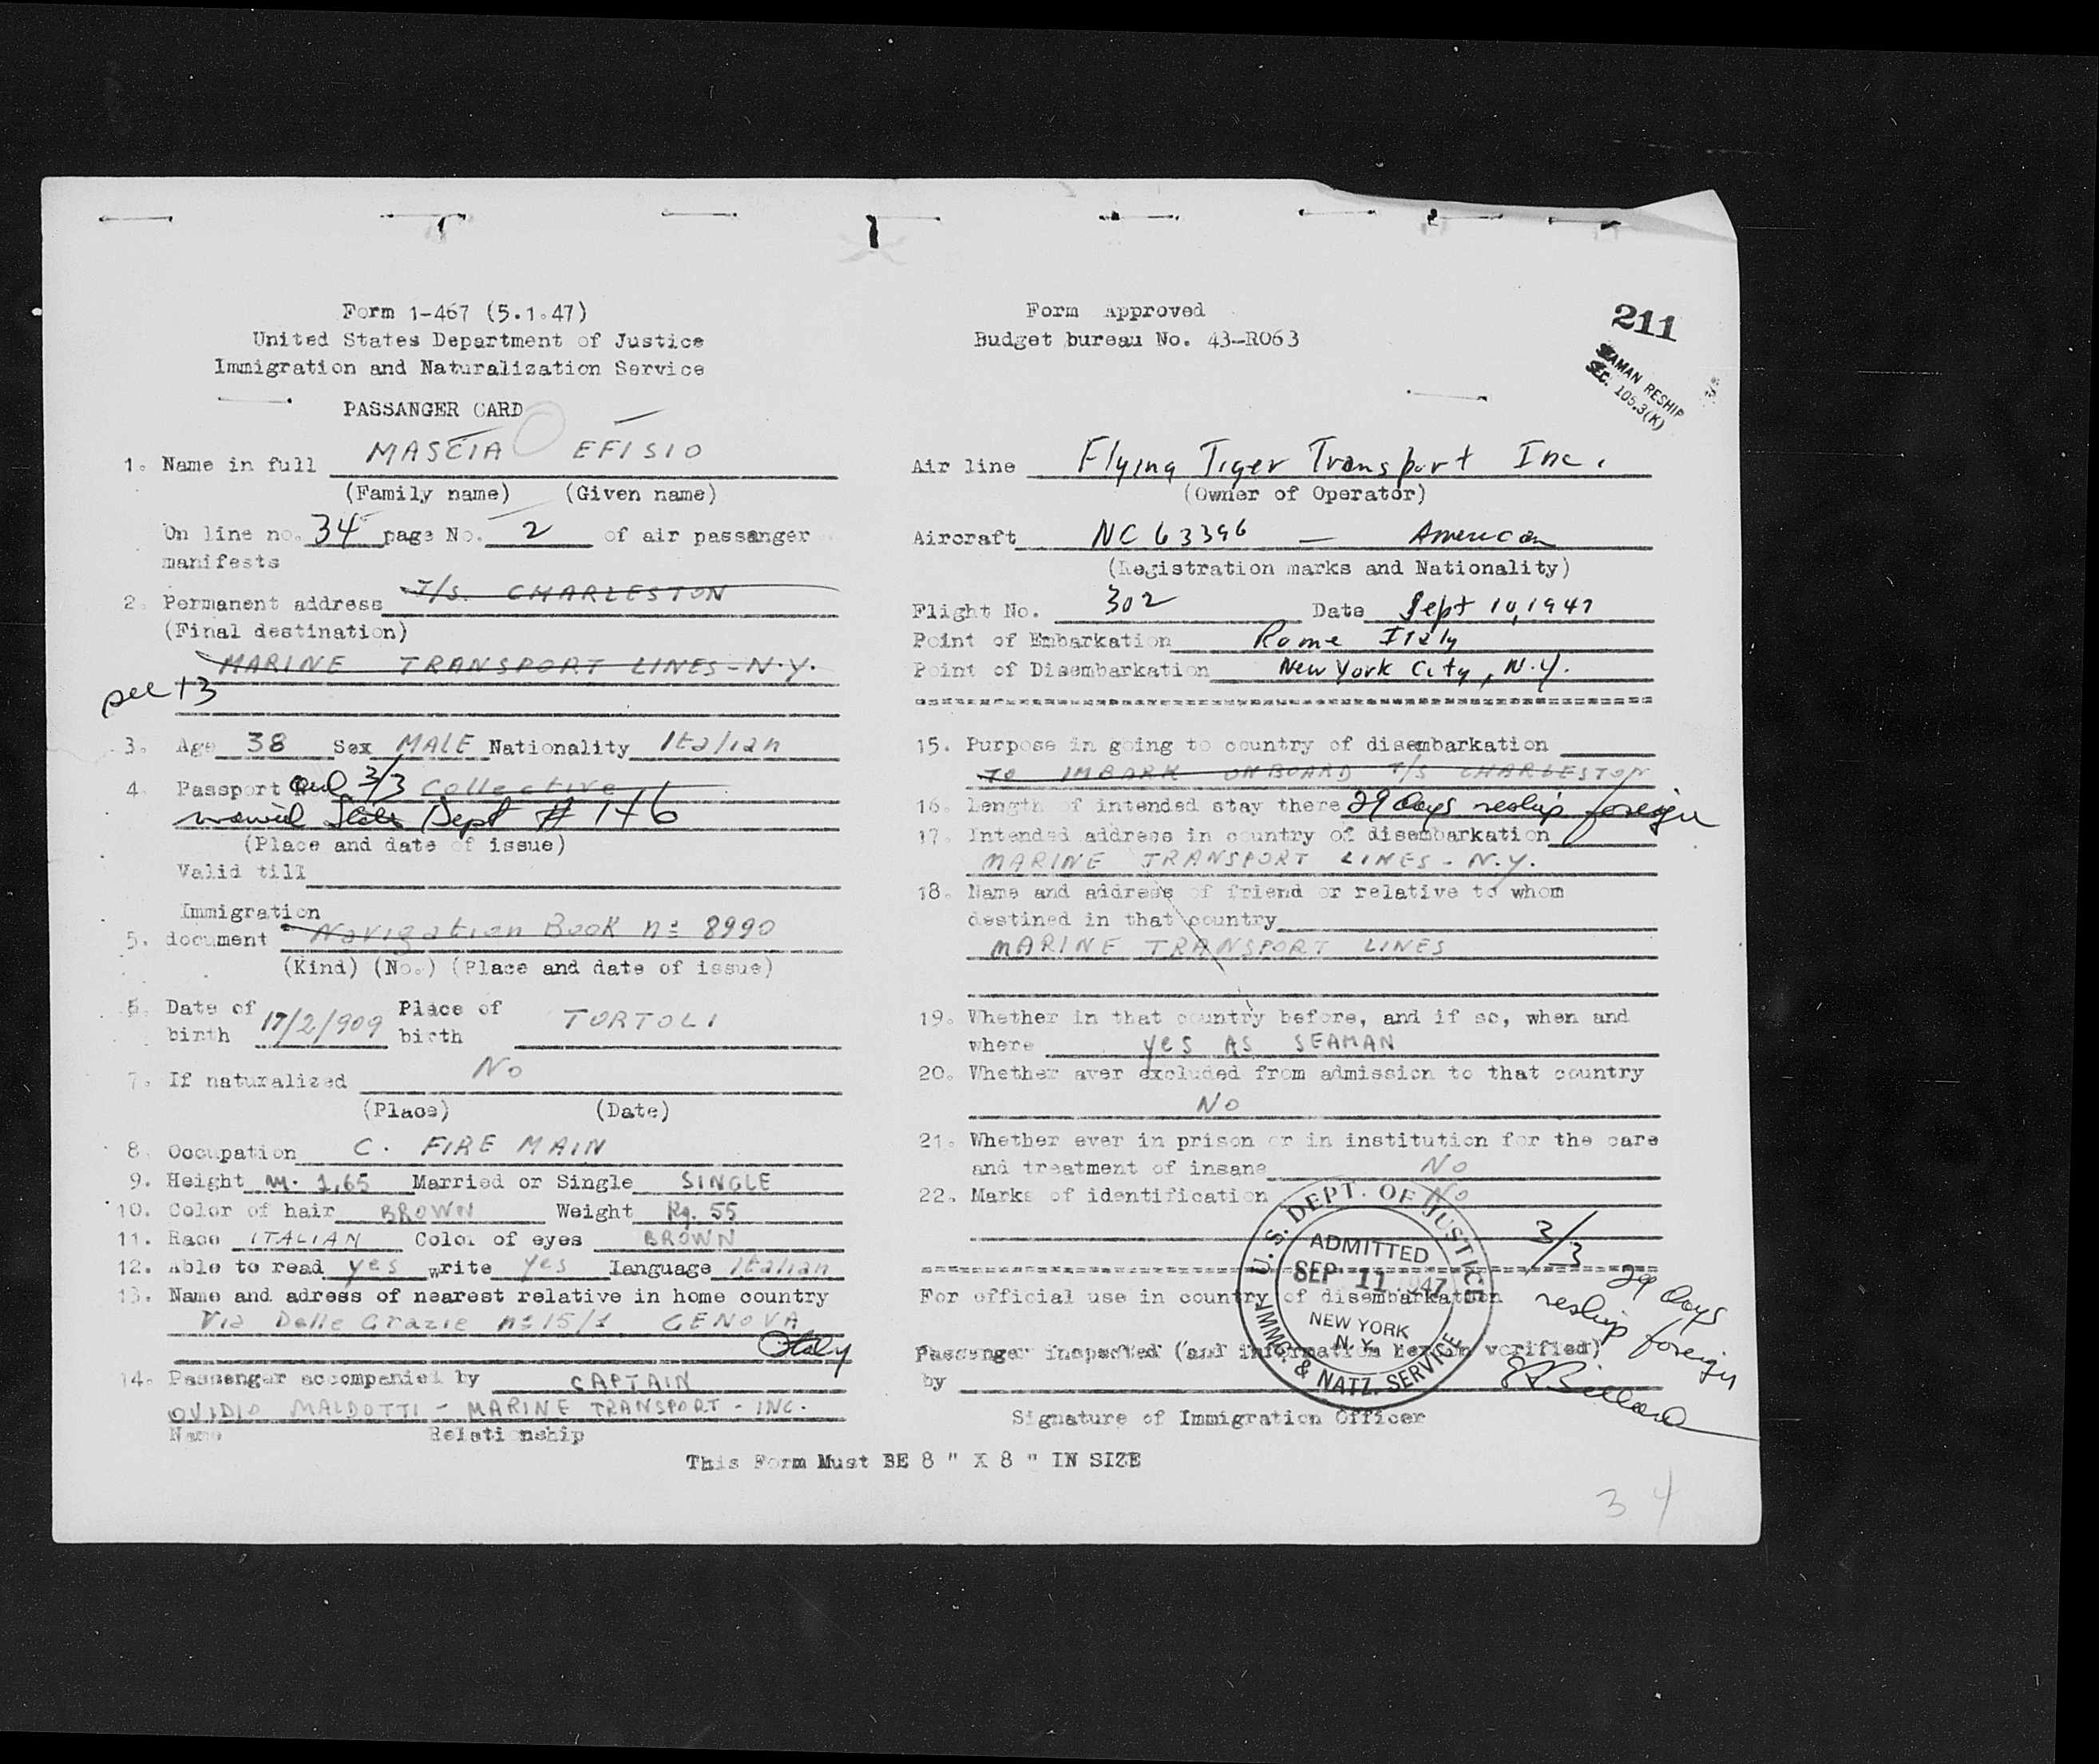 Form 1-467 (5.1.47)
United States Department of Justice
Immigration and Naturalization Service
PASSANGER CARD
1. Name in full MASCIA EFISIO
(Family name) (Given name)
On line no. 34 page No. 2 of air passanger
manifests
2. Permanent address T/S. CHARLESTON
(Final destination)
MARINE TRANSPORT LINES - N.Y.
see 13
3. Age 38 Sex MALE Nationality Italian
4. Passport 3/3 Collective
waived State Dept # 146
(Place and date of issue)
Valid till
Immigration
5. document Navigation Book n° 8990
(Kind) (No.) (Place and date of issue)
6. Date of Place of
birth 17/2/909 birth TORTOLI
7. If naturalized No
(Place) (Date)
8. Occupation C. FIRE MAIN
9. Height M. 1,65 Married or Single SINGLE
10. Color of hair BROWN Weight Kg. 55
11. Race ITALIAN Color of eyes BROWN
12. Able to read yes write yes Language Italian
13. Name and adress of nearest relative in home country
Via Delle Grazie n° 15/1 GENOVA
Italy
14. Passenger accompanied by CAPTAIN
OVIDIO MALDOTTI - MARINE TRANSPORT - INC.
Name Relationship
Form Approved
Budget bureau No. 43-R063
211
SEAMAN RESHIP
SEC. 105.3(K)
Air line Flying Tiger Transport Inc.
(Owner of Operator)
Aircraft NC 63396 — American
(Registration marks and Nationality)
Flight No. 302 Date Sept 10, 1947
Point of Embarkation Rome Italy
Point of Disembarkation New York City, N.Y.
15. Purpose in going to country of disembarkation
TO IMBARK ON BOARD T/S CHARLESTON
16. Length of intended stay there 29 days reship foreign
17. Intended address in country of disembarkation
MARINE TRANSPORT LINES - N.Y.
18. Name and address of friend or relative to whom
destined in that country
MARINE TRANSPORT LINES
19. Whether in that country before, and if so, when and
where yes AS SEAMAN
20. Whether aver excluded from admission to that country
No
21. Whether ever in prison or in institution for the care
and treatment of insane No
22. Marks of identification No
U.S. DEPT. OF JUSTICE
ADMITTED
SEP 11 1947
NEW YORK
N.Y.
IMMG. & NATZ. SERVICE
3/3
29 days
reship foreign
For official use in country of disembarkation
Passenger inspected (and information herein verified)
by
Signature of Immigration Officer
This Form Must BE 8 " X 8 " IN SIZE
34